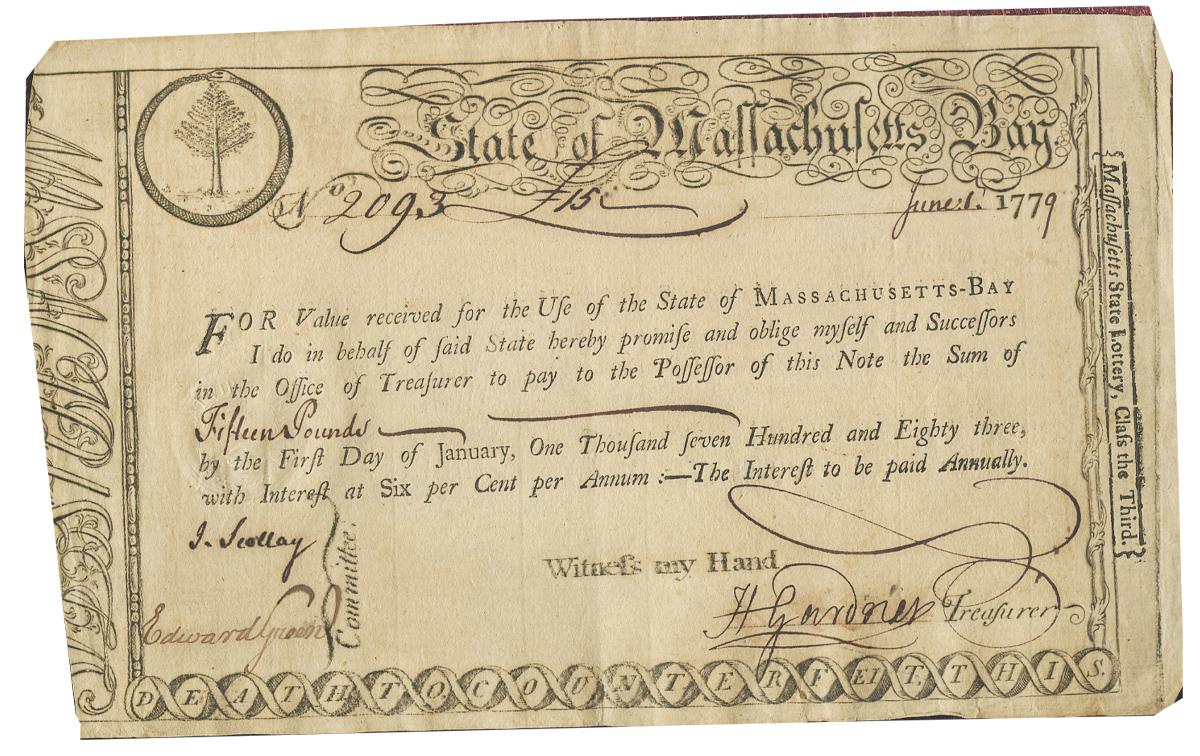 State of Maſſachuſetts Bay.
No. 2093 £15 June 1. 1779
FOR Value received for the Uſe of the State of MASSACHUSETTS-BAY
I do in behalf of ſaid State hereby promiſe and oblige myſelf and Succeſſors
in the Office of Treaſurer to pay to the Poſſeſſor of this Note the Sum of
Fifteen Pounds
by the Firſt Day of January, One Thouſand ſeven Hundred and Eighty three,
with Intereſt at Six per Cent per Annum :—The Intereſt to be paid Annually.
J. Scollay
Edward Green
Committee.
Witneſs my Hand
H Gardner Treaſurer
DEATH TO COUNTERFEIT THIS.
{Maſſachuſetts State Lottery, Claſs the Third.}